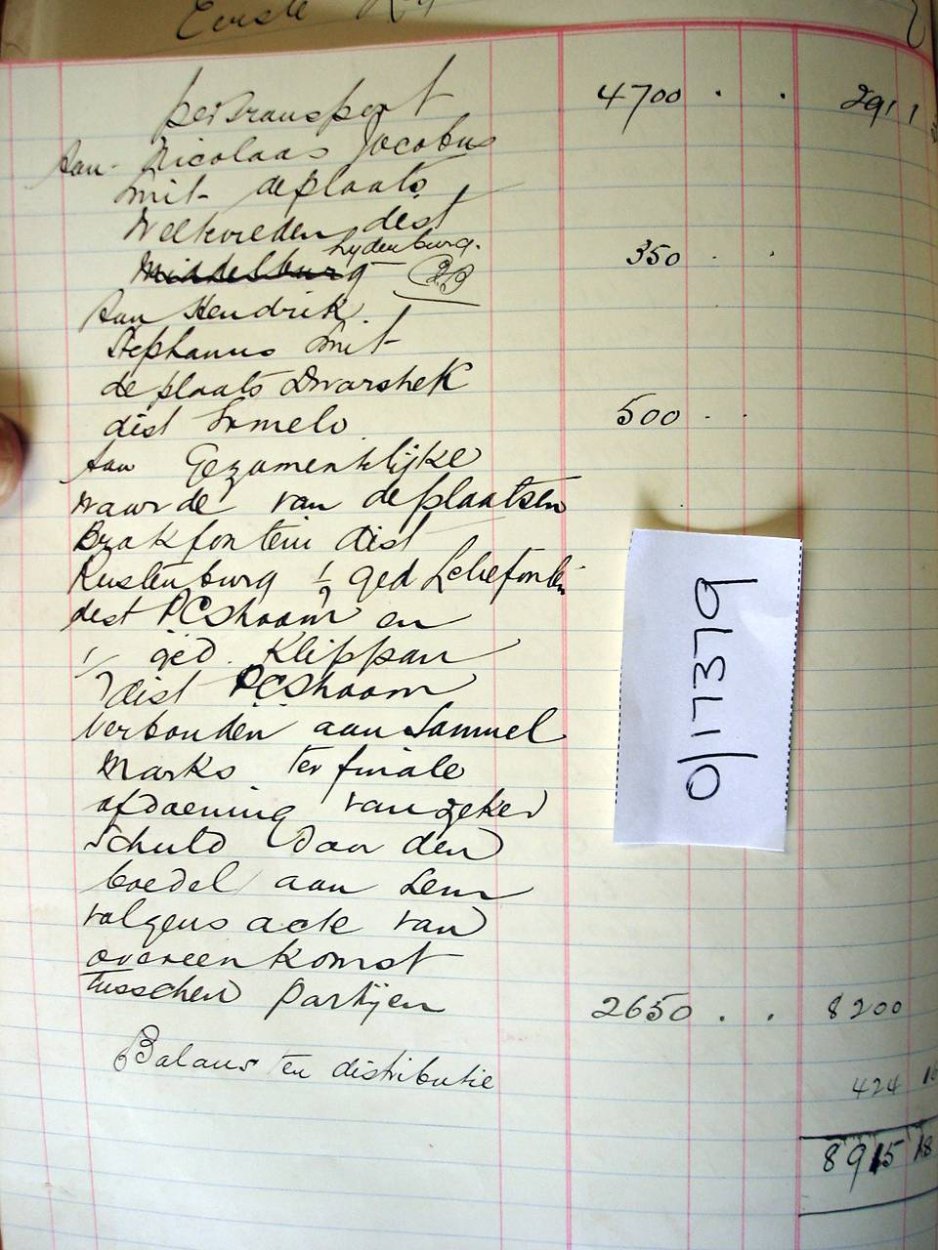 Eerste
per Transport 4700 . . 291 1
Aan Nicolaas Jocobus
mit de plaats
Weltevreden dist
Lydenburg.
Middelburg 350 . .
Aan Hendrik
Stephanus mit
de plaats Dwarshek
dist Ermelo 500 . .
Aan Gezamentlijke
waarde van de plaatsen
Brakfontein dist
Rustenburg ged Leliefontein
dist PCShoom en
ged. Klippan
dist PCShoom
verbonden aan Samuel
Marks ter finale
afdoening van zeker
Schuld door den
boedel aan hem
volgens acte van
overeenkomst
tusschen partijen 2650 . . 8200
Balans ten distributie 424
8915 18
0/17379